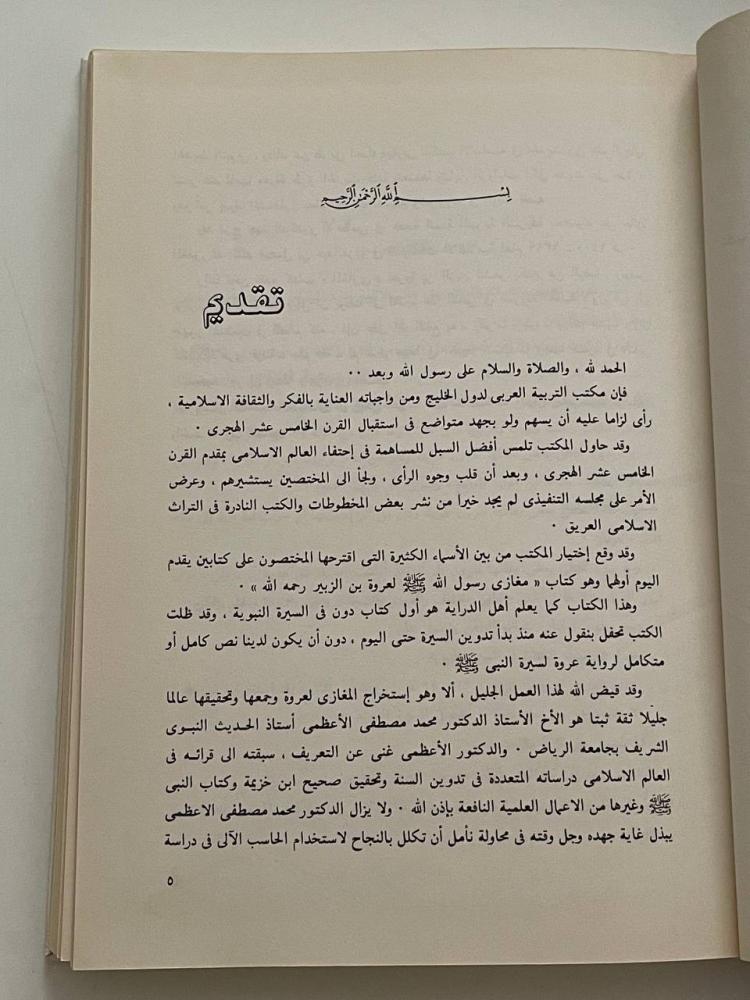 بسم الله الرحمن الرحيم
تقديم
الحمد لله ، والصلاة والسلام على رسول الله وبعد ٠٠
فإن مكتب التربية العربى لدول الخليج ومن واجباته العناية بالفكر والثقافة الاسلامية ،
رأى لزاما عليه أن يسهم ولو بجهد متواضع فى استقبال القرن الخامس عشر الهجرى ٠
وقد حاول المكتب تلمس أفضل السبل للمساهمة فى إحتفاء العالم الاسلامى بمقدم القرن
الخامس عشر الهجرى ، وبعد أن قلب وجوه الرأى ، ولجأ الى المختصين يستشيرهم ، وعرض
الأمر على مجلسه التنفيذى لم يجد خيرا من نشر بعض المخطوطات والكتب النادرة فى التراث
الاسلامى العريق ٠
وقد وقع إختيار المكتب من بين الأسماء الكثيرة التى اقترحها المختصون على كتابين يقدم
اليوم أولهما وهو كتاب « مغازى رسول الله ﷺ لعروة بن الزبير رحمه الله » ٠
وهذا الكتاب كما يعلم أهل الدراية هو أول كتاب دون فى السيرة النبوية ، وقد ظلت
الكتب تحفل بنقول عنه منذ بدأ تدوين السيرة حتى اليوم ، دون أن يكون لدينا نص كامل أو
متكامل لرواية عروة لسيرة النبى ﷺ ٠
وقد قيض الله لهذا العمل الجليل ، ألا وهو إستخراج المغازى لعروة وجمعها وتحقيقها عالما
جليلا ثقة ثبتا هو الأخ الأستاذ الدكتور محمد مصطفى الأعظمى أستاذ الحديث النبوى
الشريف بجامعة الرياض ٠ والدكتور الأعظمى غنى عن التعريف ، سبقته الى قرائه فى
العالم الاسلامى دراساته المتعددة فى تدوين السنة وتحقيق صحيح ابن خزيمة وكتاب النبى
ﷺ وغيرها من الاعمال العلمية النافعة بإذن الله ٠ ولا يزال الدكتور محمد مصطفى الاعظمى
يبذل غاية جهده وجل وقته فى محاولة نأمل أن تكلل بالنجاح لاستخدام الحاسب الآلى فى دراسة
٥